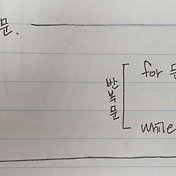 문.
for 문
반복문
while